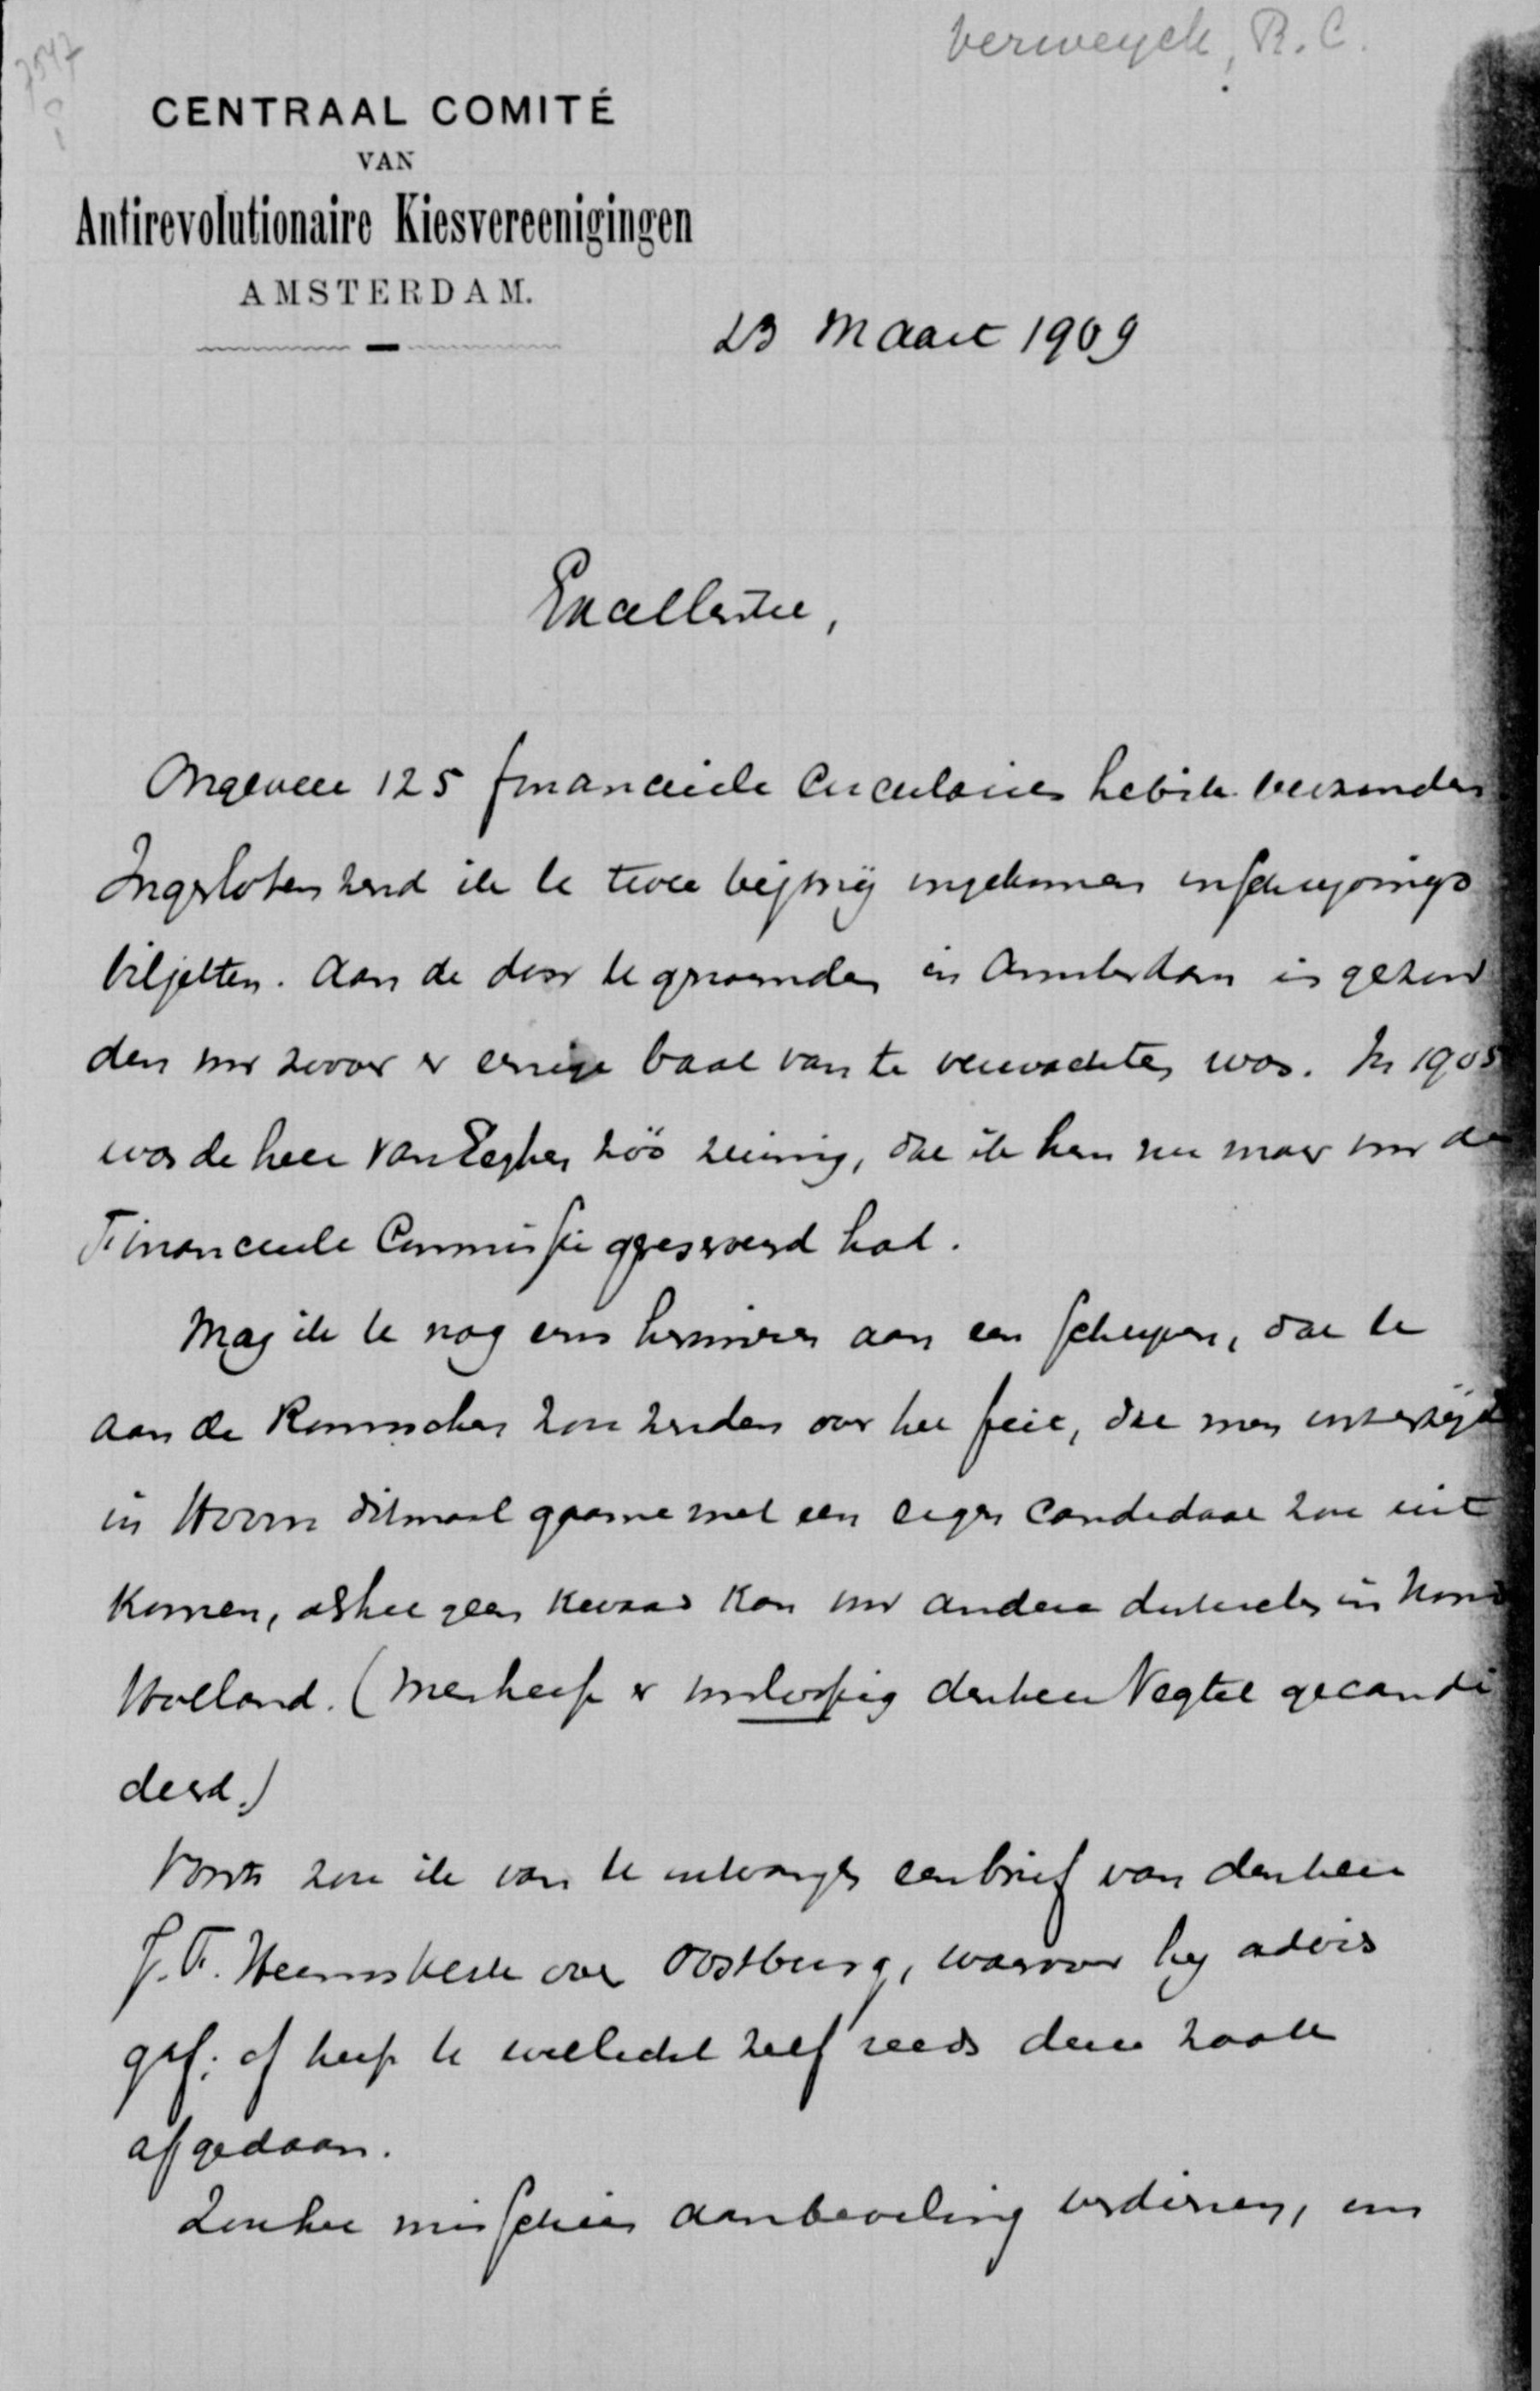 7547
Verweyck, R. C.
CENTRAAL COMITÉ
VAN
Antirevolutionaire Kiesvereenigingen
AMSTERDAM.
23 Maart 1909
Excellentie,
Ongeveer 125 financieele circulaires heb ik verzonden
Ingesloten zend ik U twee bij mij ingekomen inschrijvings
biljetten. Aan de door U genoemden in Amsterdam is gezon
den voor zoover er eenige baat van te verwachten was. In 1905
was de heer Van Eeghen zóó zuinig, dat ik hem nu maar voor de
Financieele Commissie gereserveerd had.
Mag ik U nog eens herinneren aan een schrijven, dat U
aan de Roomschen zou zenden over het feit, dat men onzerzijds
in Hoorn ditmaal gaarne met een eigen candidaat zou uit
komen, als het geen kwaad kan voor andere districten in Noord
Holland. (Men heeft er voorloopig den heer Vegtel gecandi
deerd.)
Voorts zou ik van U ontvangen een brief van den heer
J. F. Heemskerk over Oostburg, waarover hij advies
gaf; of heeft U wellicht zelf reeds deze zaak
afgedaan.
Zou het misschien aanbeveling verdienen, om